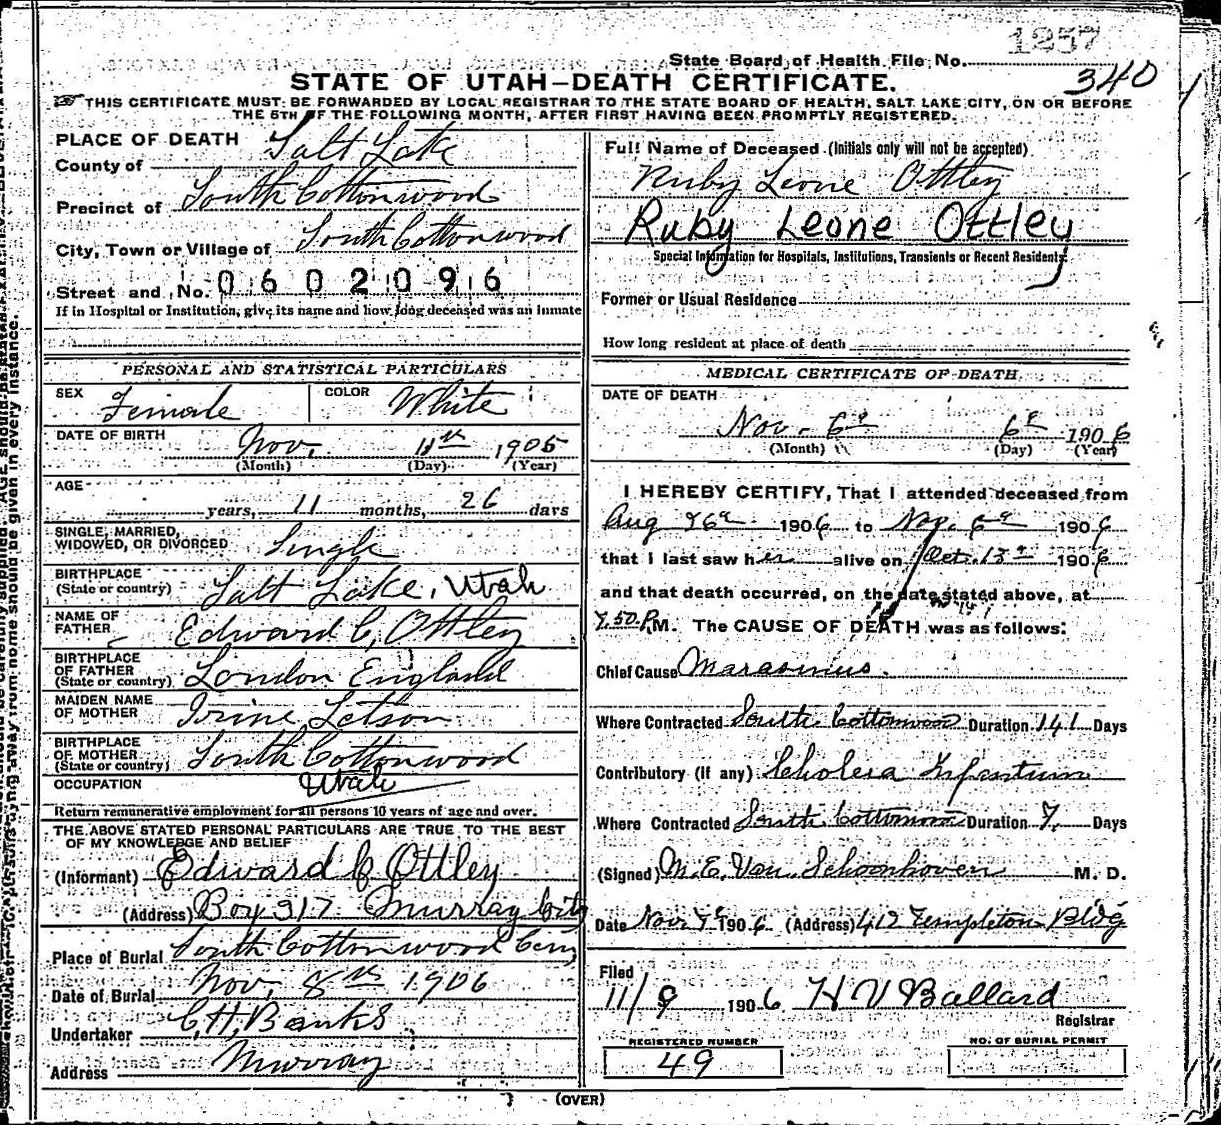 1257
State Board of Health File No.
340
STATE OF UTAH—DEATH CERTIFICATE.
THIS CERTIFICATE MUST BE FORWARDED BY LOCAL REGISTRAR TO THE STATE BOARD OF HEALTH, SALT LAKE CITY, ON OR BEFORE
THE 5TH OF THE FOLLOWING MONTH, AFTER FIRST HAVING BEEN PROMPTLY REGISTERED.
PLACE OF DEATH
County of Salt Lake
Precinct of South Cottonwood
City, Town or Village of South Cottonwood
Street and No. 0602096
If in Hospital or Institution, give its name and how long deceased was an inmate
PERSONAL AND STATISTICAL PARTICULARS
SEX Female COLOR White
DATE OF BIRTH Nov. 11th 1905
(Month) (Day) (Year)
AGE years, 11 months, 26 days
SINGLE, MARRIED,
WIDOWED, OR DIVORCED Single
BIRTHPLACE
(State or country) Salt Lake, Utah
NAME OF
FATHER Edward C, Ottley
BIRTHPLACE
OF FATHER
(State or country) London England
MAIDEN NAME
OF MOTHER Irine Letson
BIRTHPLACE
OF MOTHER
(State or country) South Cottonwood
OCCUPATION Utah
Return remunerative employment for all persons 10 years of age and over.
THE ABOVE STATED PERSONAL PARTICULARS ARE TRUE TO THE BEST
OF MY KNOWLEDGE AND BELIEF
(Informant) Edward C Ottley
(Address) Box 317 Murray City
Place of Burial South Cottonwood Cem,
Date of Burial Nov, 8th 1906
Undertaker C, H, Banks
Address Murray
Full Name of Deceased (Initials only will not be accepted)
Ruby Leone Ottley
Ruby Leone Ottley
Special Information for Hospitals, Institutions, Transients or Recent Residents
Former or Usual Residence
How long resident at place of death
MEDICAL CERTIFICATE OF DEATH
DATE OF DEATH
Nov. 6th 6th 1906
(Month) (Day) (Year)
I HEREBY CERTIFY, That I attended deceased from
Aug 26th 1906 to Nov. 6th 1906
that I last saw her alive on Oct. 13th 1906
and that death occurred, on the date stated above, at
7.50 P.M. The CAUSE OF DEATH was as follows:
Chief Cause Marasmus.
Where Contracted South Cottonwood Duration 141 Days
Contributory (if any) Cholera Infantum
Where Contracted South Cottonwood Duration 7. Days
(Signed) M. E. Van Schoonhoven M. D.
Date Nov 7th 1906 (Address) 412 Templeton Bldg
Filed
11/9 1906 H V Ballard
Registrar
REGISTERED NUMBER
49
NO. OF BURIAL PERMIT
(OVER)